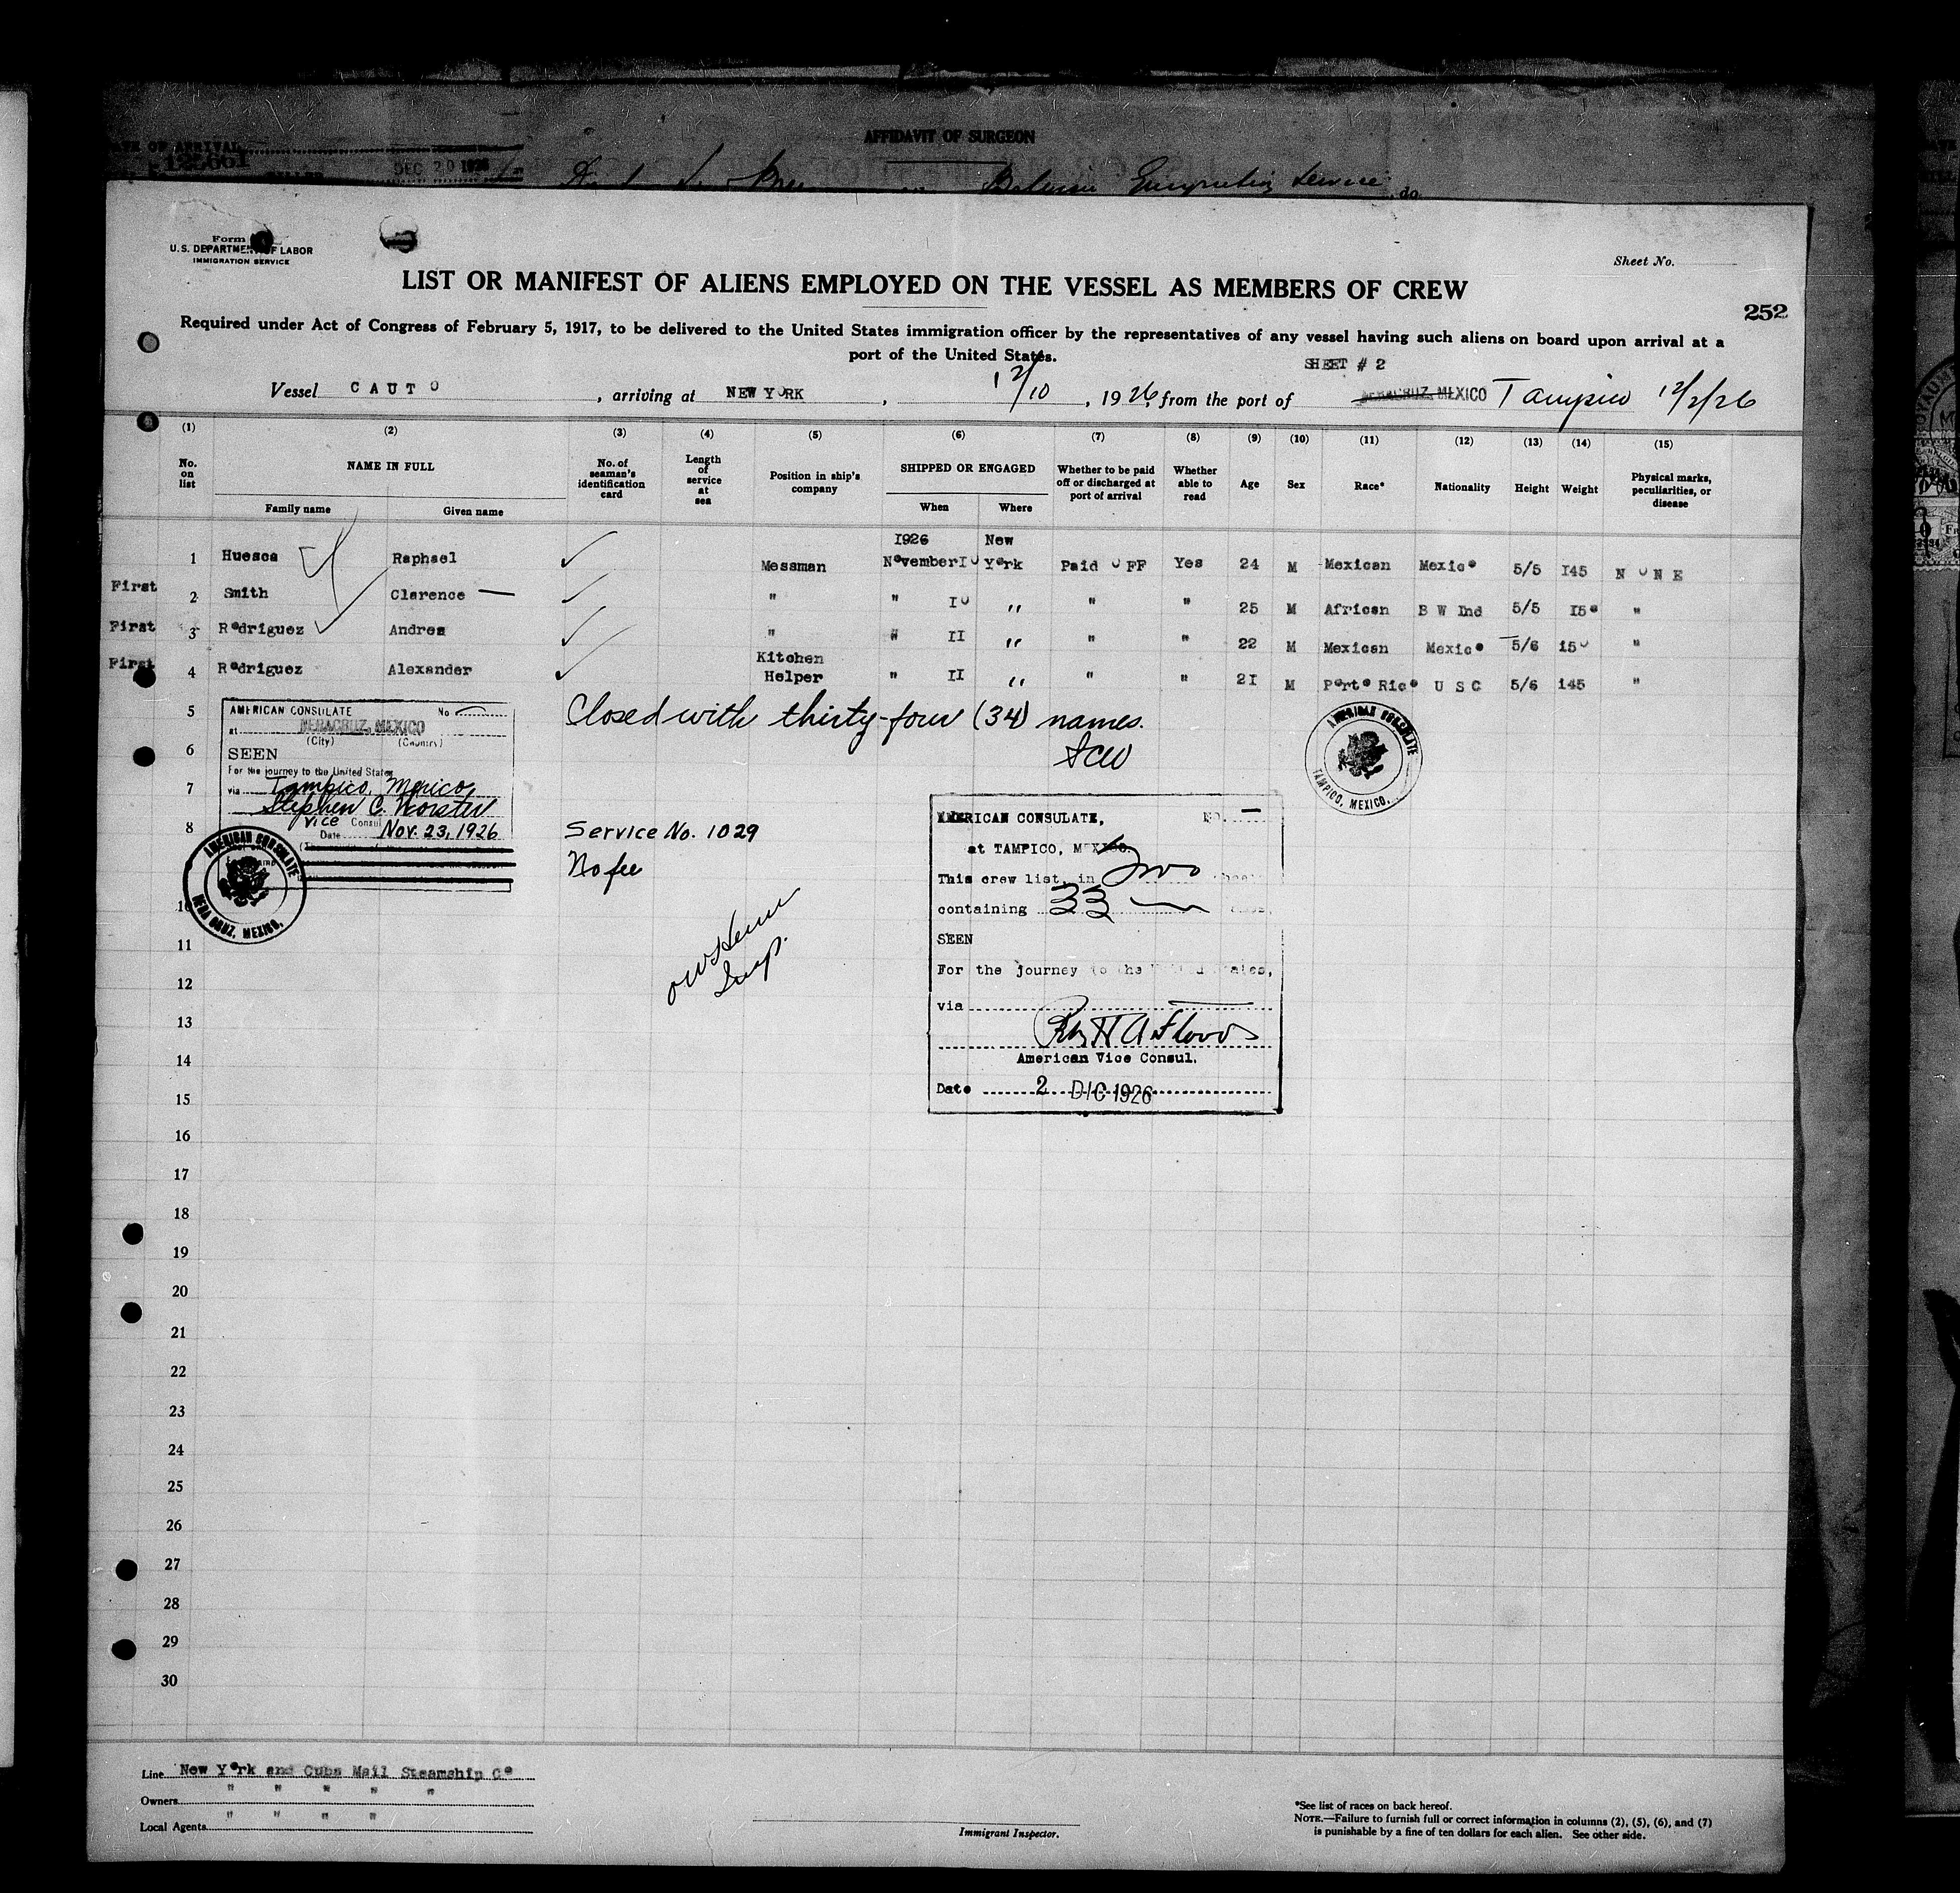 AFFIDAVIT OF SURGEON
DATE OF ARRIVAL
125661
DEC 20 1926
Form
U.S. DEPARTMENT OF LABOR
IMMIGRATION SERVICE
Sheet No.
LIST OR MANIFEST OF ALIENS EMPLOYED ON THE VESSEL AS MEMBERS OF CREW
252
Required under Act of Congress of February 5, 1917, to be delivered to the United States immigration officer by the representatives of any vessel having such aliens on board upon arrival at a
port of the United States.
SHEET # 2
Vessel CAUTO, arriving at NEW YORK, 12/10, 1926, from the port of VERACRUZ, MEXICO Tampico 12/2/26
(1) (2) (3) (4) (5) (6) (7) (8) (9) (10) (11) (12) (13) (14) (15)
No. on list NAME IN FULL Family name Given name No. of seaman's identification card Length of service at sea Position in ship's company SHIPPED OR ENGAGED When Where Whether to be paid off or discharged at port of arrival Whether able to read Age Sex Race* Nationality Height Weight Physical marks, peculiarities, or disease
1926 New
1 Huesca Raphael Messman November 10 York Paid OFF Yes 24 M Mexican Mexico 5/5 145 NONE
First 2 Smith Clarence — " " 10 " " " 25 M African B W Ind 5/5 150 "
First 3 Rodriguez Andrea " " 11 " " " 22 M Mexican Mexico 5/6 150 "
First 4 Rodriguez Alexander Kitchen Helper " 11 " " " 21 M Porto Rico U S C 5/6 145 "
5
6
7
8
10
11
12
13
14
15
16
17
18
19
20
21
22
23
24
25
26
27
28
29
30
AMERICAN CONSULATE No
at VERACRUZ, MEXICO
(City) (Country)
SEEN
For the journey to the United States
via Tampico, Mexico,
Stephen C. Worster
Vice Consul
Date Nov. 23, 1926
AMERICAN CONSULATE
VERA CRUZ, MEXICO.
Closed with thirty-four (34) names.
SCW
Service No. 1029
No fee
Insp.
AMERICAN CONSULATE
TAMPICO, MEXICO.
AMERICAN CONSULATE, NO. —
at TAMPICO, MEXICO.
This crew list, in two sheets
containing 33 names,
SEEN
For the journey to the United States,
via
American Vice Consul.
Date 2 DIC 1926
Line New York and Cuba Mail Steamship Co
Owners " " " " "
Local Agents " " " "
Immigrant Inspector.
*See list of races on back hereof.
NOTE.—Failure to furnish full or correct information in columns (2), (5), (6), and (7)
is punishable by a fine of ten dollars for each alien. See other side.